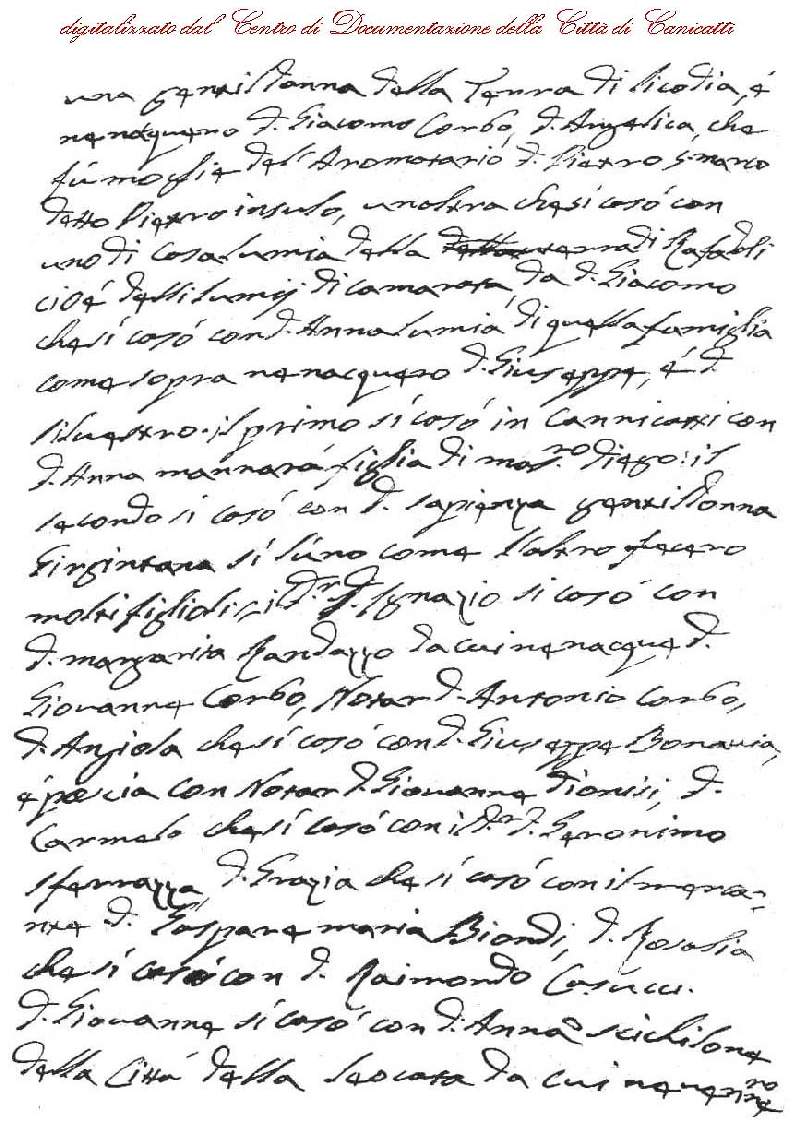 digitalizzato dal Centro di Documentazione della Città di Canicattì
una gentildonna della Terra di Licodia, é
ne nacquero d. Giacomo Corbo, d. Angelica, che
fú moglie dell'Aromatario d. Pietro S. Marco
detto Pietro insulo, un altra che si casó con
uno di casa Lumia della terra di Rafadali
cioé delli Lumij di Camarata, da d. Giacomo
che si casó con d. Anna Lumia di quella famiglia
come sopra ne nacquero d. Giuseppe, é d.
Silvestro. il primo si casó in Cannicatti con
d. Anna mannará figlia di mas.ro Diego: il
secondo si casó con d. sapienza gentildonna
Girgintana si l'uno come l'altro fecero
molti figlioli; il Dr. d. Ignazio si casó con
d. margarita Randazzo da cui ne nacque d.
Giovanne Corbo, Notar d. Antonio Corbo,
d. Angiola che si casó con d. Giuseppe Bonavia,
é poscia con Notar d. Giovanne Dionisi, d.
Carmelo che si casó con il Dr. d. Geronimo
sferrazza d. Grazia che si casó con il merca-
nte d. Gaspare maria Biondi, d. Rosalia
che si casó con d. Raimondo Casucci.
d. Giovanne si casó con d. Anna scichilone
della Cittá della Leocata da cui ne venne
ro